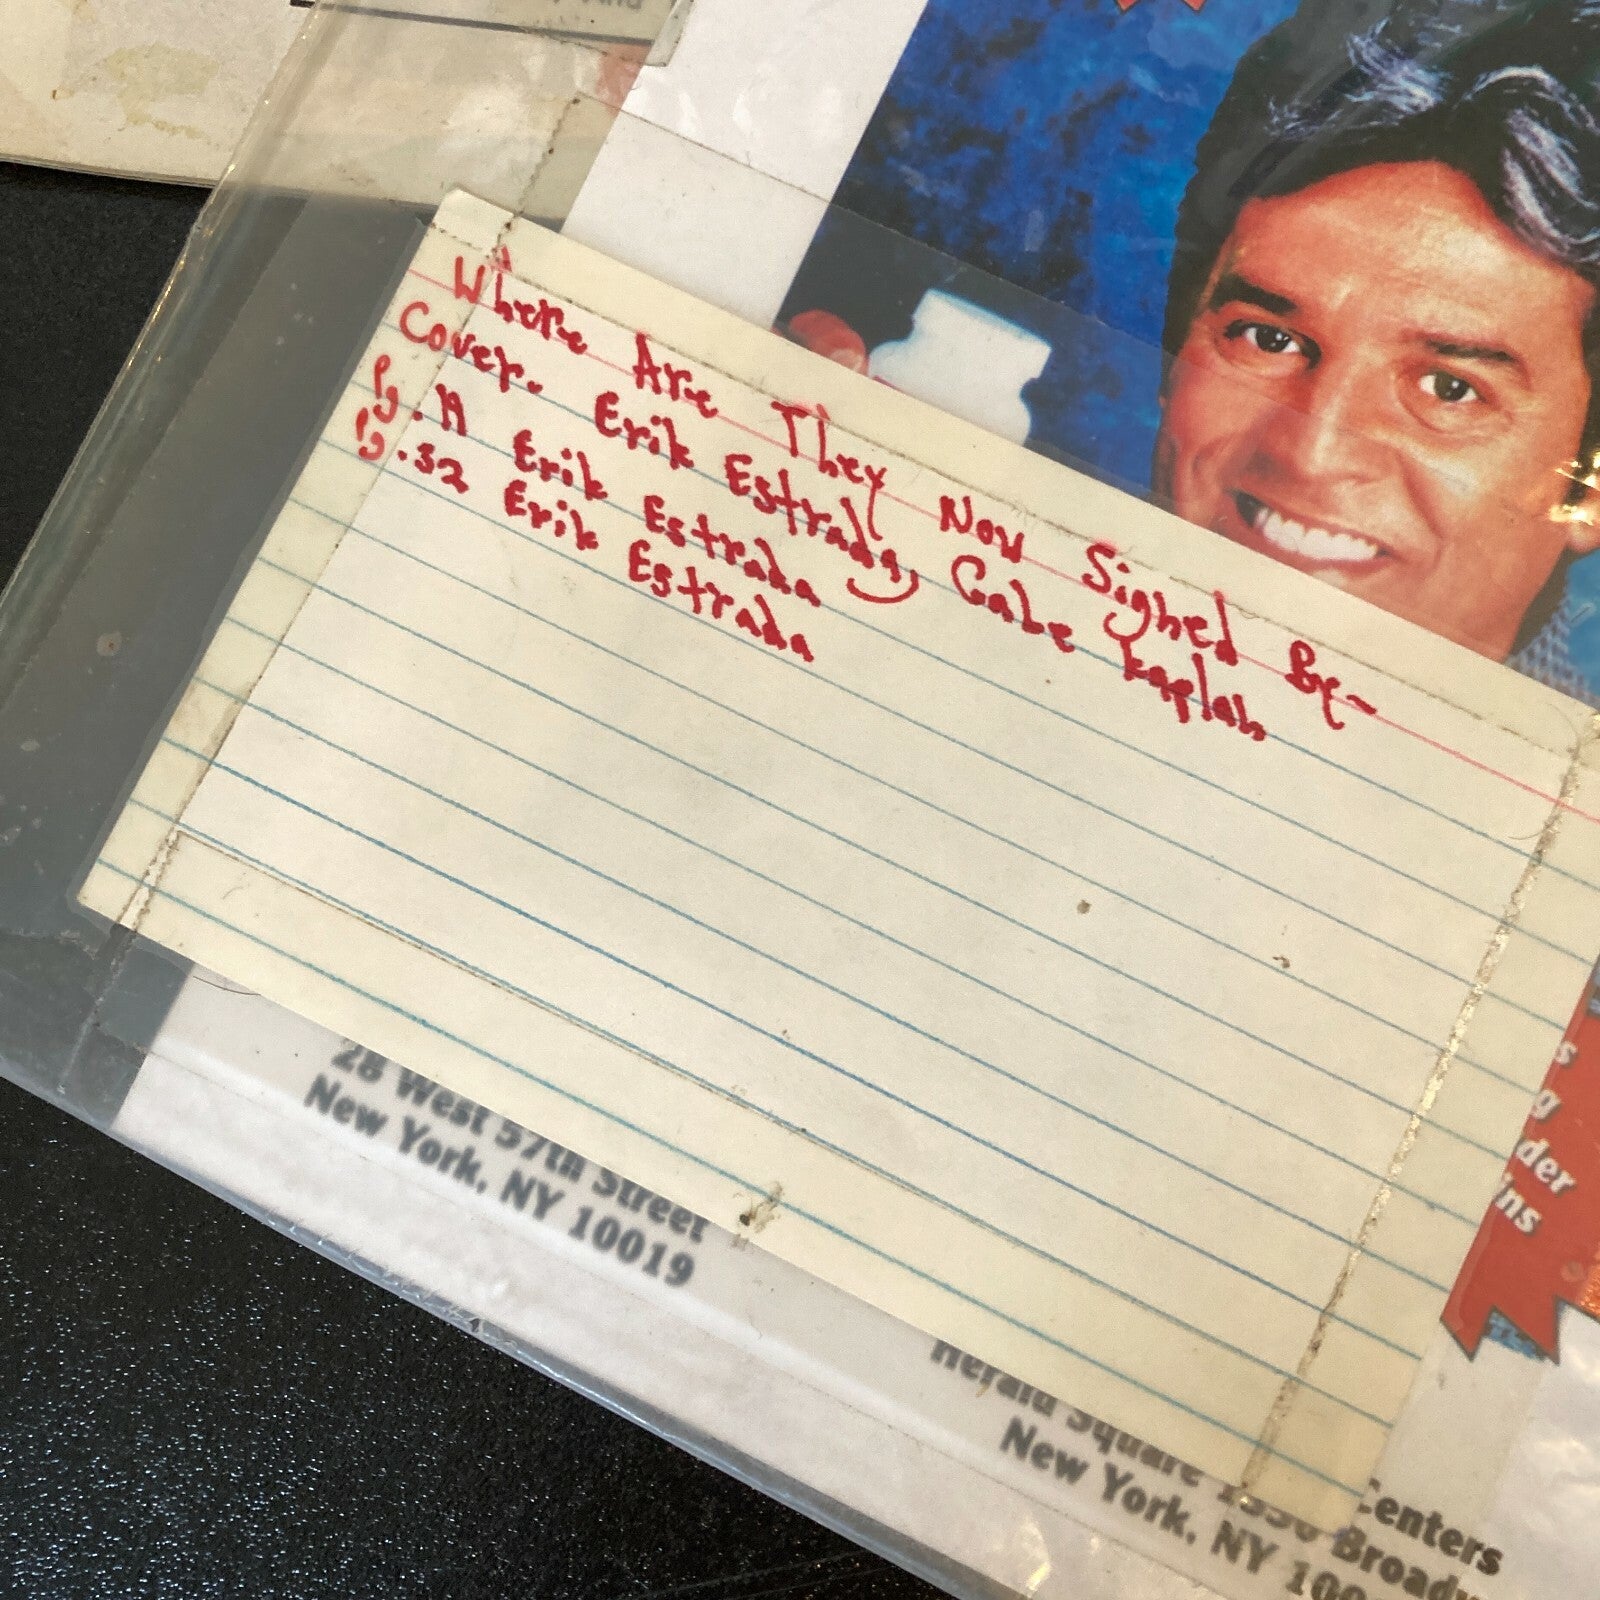 Where Are They Now Signed By-
Cover. Erik Estrada, Gabe Kaplan
Pg. 19 Erik Estrada
Pg. 32 Erik Estrada
28 West 57th Street
New York, NY 10019
Herald Square 1336 Broadw
New York, NY 100
Centers
s
g
der
ns